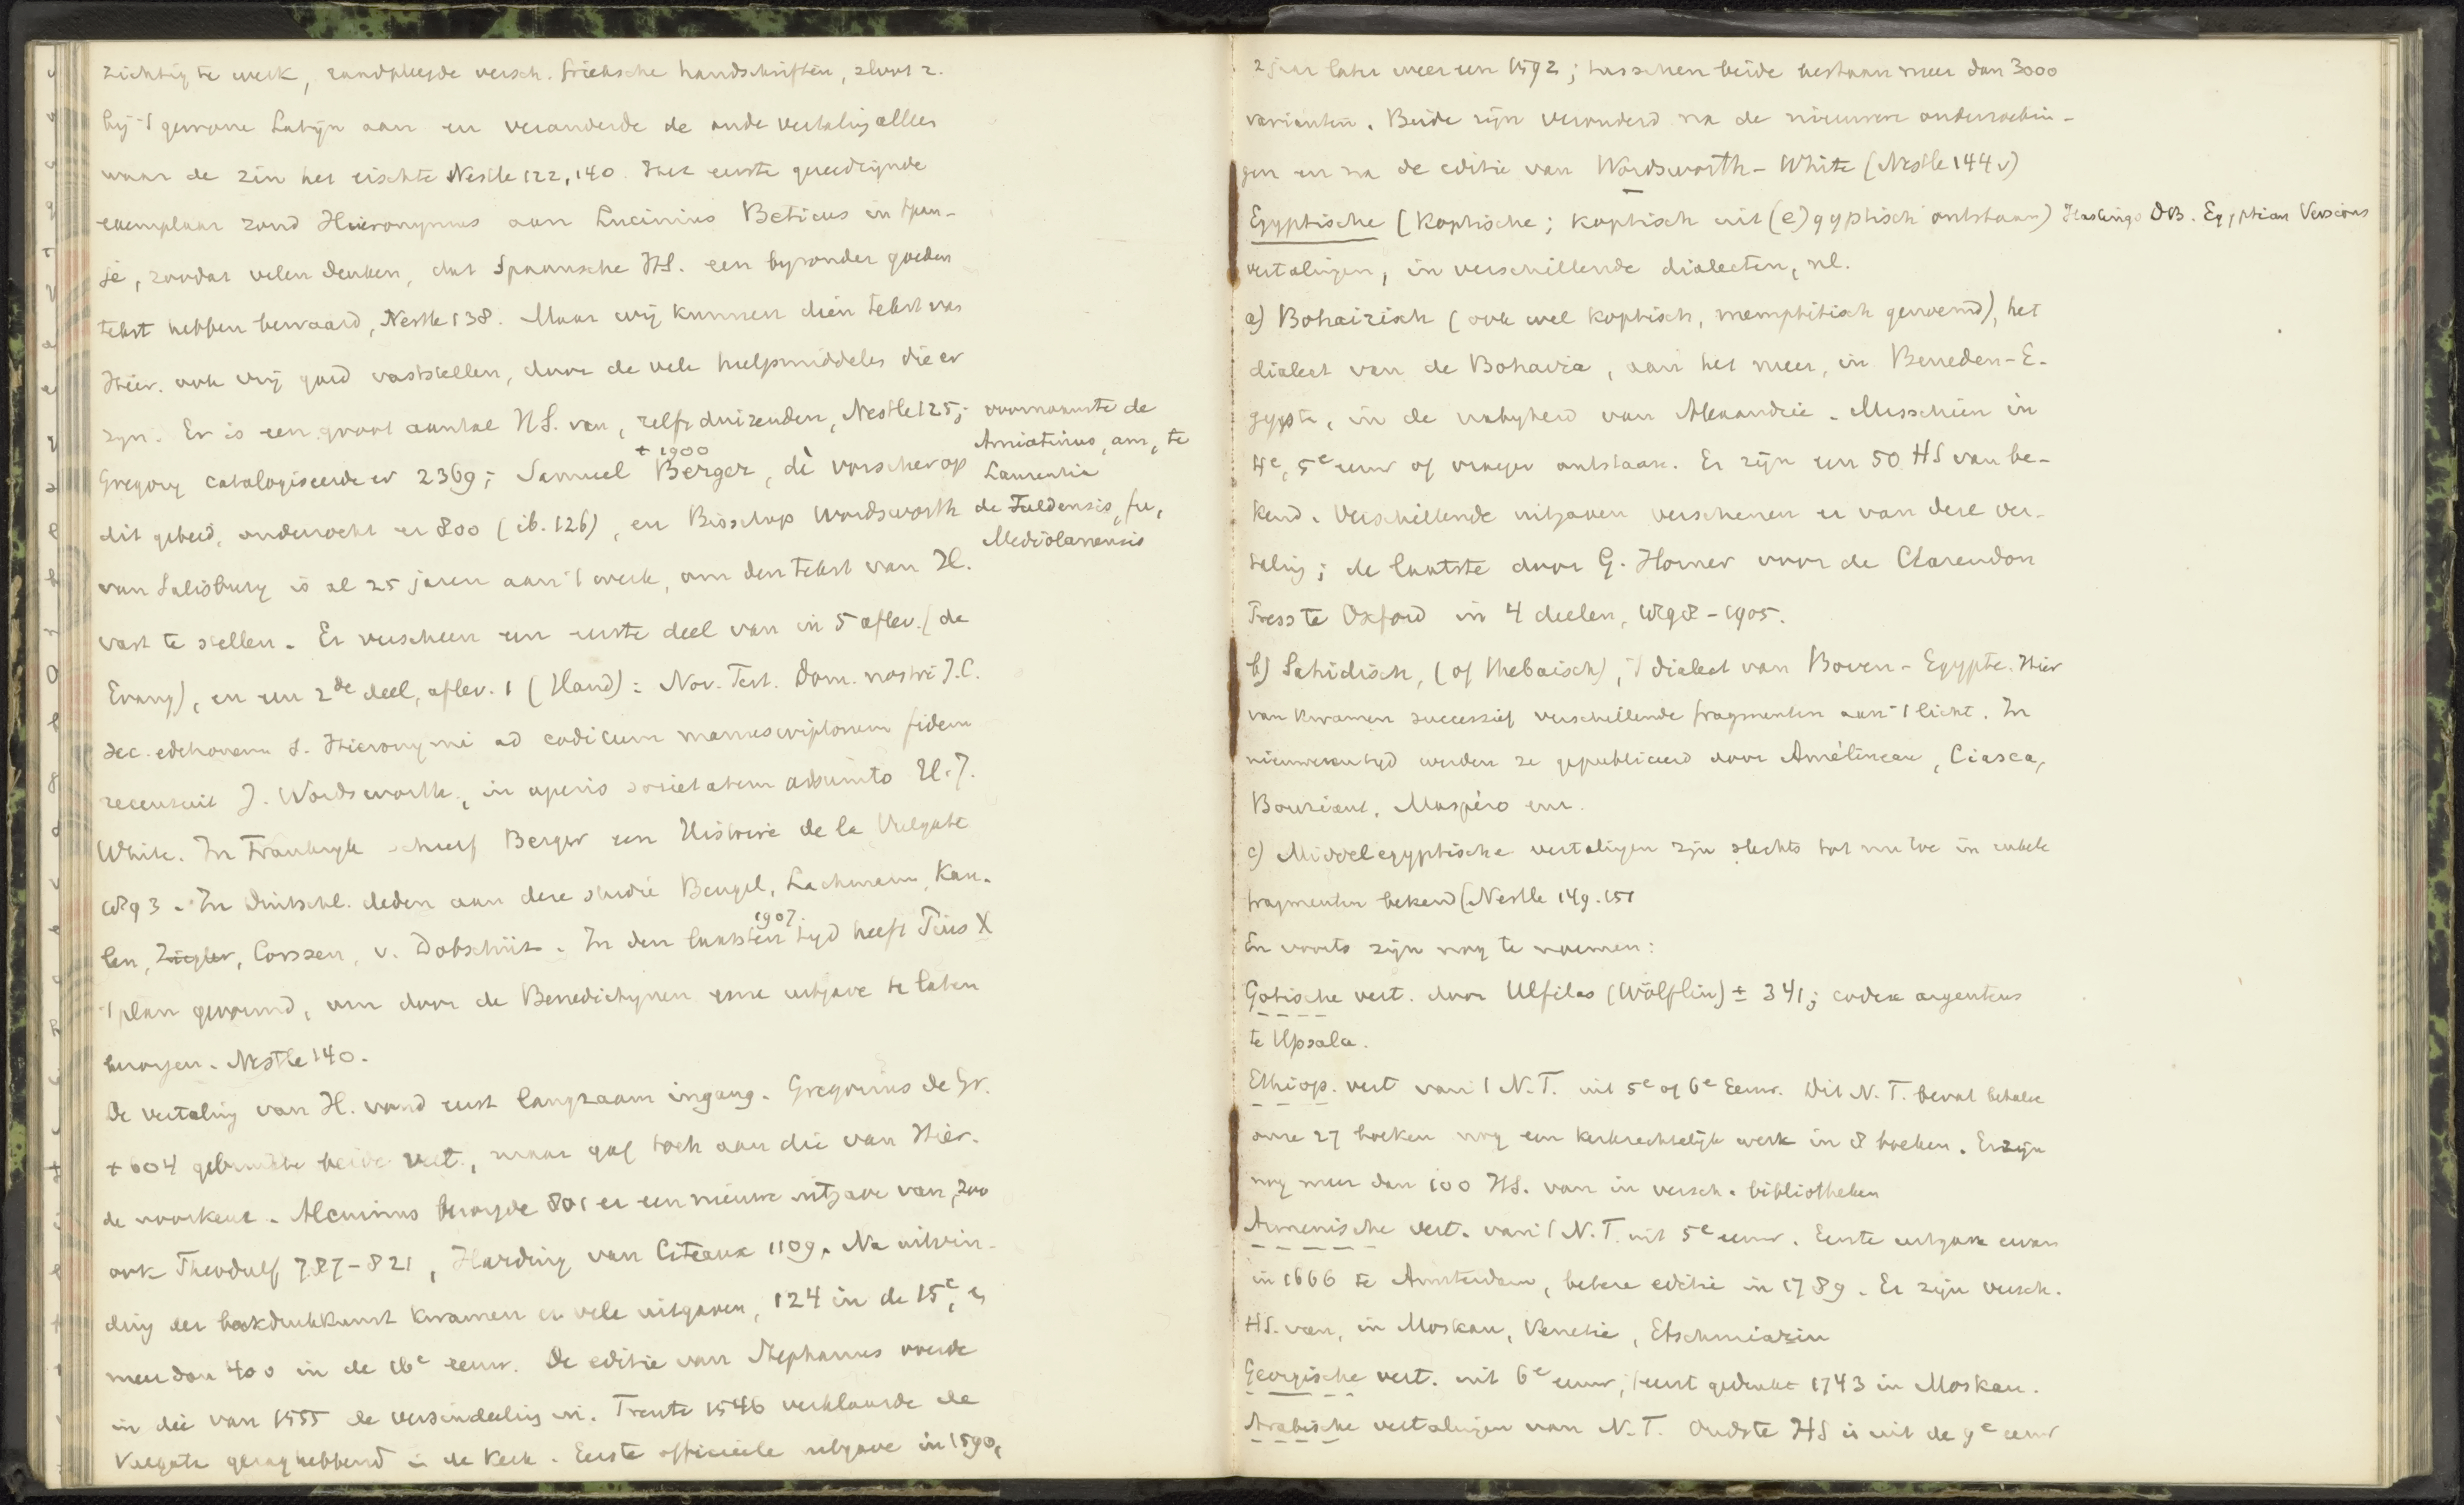 zichtig te werk, raadpleegde versch. Grieksche handschriften, sloot z.
bij 't gewone Latijn aan en veranderde de oude vertaling alleen
waar de zin het eischte Nestle 122, 140. Het eerste gereedzijnde
exemplaar zond Hieronymus aan Lucinius Beticus in Span-
je, zoodat velen denken, dat Spaansche HS. een byzonder goeden
tekst hebben bewaard, Nestle 138. Maar wij kunnen dien tekst van
Hier. ook vrij goed vaststellen, door de vele hulpmiddelen die er
zyn. Er is een groot aantal HS. van, zelfs duizenden, Nestle 125; voornaamste de
Amiatinus, am, te
Laurentia
de Fuldensis, fu,
Mediolanensis
† 1900
Gregory catalogiseerde er 2369; Samuel Berger, dè vorscher op
dit gebied, onderzocht er 800 (ib. 126), en Bisschop Wordsworth
van Salisbury is al 25 jaren aan 't werk, om den tekst van H.
vast te stellen. Er verscheen een eerste deel van in 5 aflev. (de
Evang), en een 2de deel, aflev. 1 (Hand): Nov. Test. Dom. nostri J.C.
sec. editionem S. Hieronymi ad codicum manuscriptorum fidem
recensuit J. Wordsworth, in operis societatem adsumto H. J.
White. In Frankryk schreef Berger een Histoire de la Vulgate
1893. In Duitschl. deden aan deze studie Bengel, Lachmann, Kau-
len, Ziegler, Corssen, v. Dobschütz. In den laatsten tyd heeft Pius X
1907.
't plan gevormd, om door de Benedictynen eene uitgave te laten
bezorgen. Nestle 140.
De vertaling van H. vond eerst langzaam ingang. Gregorius de Gr.
† 604 gebruikte beide vert., maar gaf toch aan die van Hier.
de voorkeur. Alcuinus bezorgde 801 er een nieuwe uitgave van, zoo
ook Theodulf 787-821, Harding van Citeaux 1109. Na uitvin-
ding der boekdrukkunst kwamen er vele uitgaven, 124 in de 15e, en
meer dan 400 in de 16e eeuw. De editie van Stephanus voerde
in die van 1555 de versindeeling in. Trente 1546 verklaarde de
Vulgata gezaghebbend in de Kerk. Eerste officieele uitgave in 1590,
2 jaar later weer een 1592; tusschen beide bestaan meer dan 3000
varianten. Beide zijn verouderd na de nieuwere onderzoekin-
gen en na de editie van Wordsworth-White (Nestle 144 v)
Egyptische (Koptische; Koptisch uit (e)gyptisch ontstaan) Hastings DB. Egyptian Versions
vertalingen, in verschillende dialecten, nl.
a) Bohairisch (ook wel Koptisch, memphitisch genoemd), het
dialect van de Bohairia, aan het meer, in Beneden-E-
gypte, in de nabyheid van Alexandrie. Misschien in
4e, 5e eeuw of vroeger ontstaan. Er zijn een 50 HS van be-
kend. Verschillende uitgaven verschenen er van deze ver-
taling; de laatste door G. Horner voor de Clarendon
Press te Oxford in 4 deelen, 1898-1905.
b) Sahidisch, (of thebaisch), 't dialect van Boven-Egypte. Hier
van kwamen successief verschillende fragmenten aan 't licht. In
nieuweren tyd werden ze gepubliceerd door Amélineau, Ciasca,
Bouriant, Maspéro enz.
c) Middelegyptische vertalingen zijn slechts tot nu toe in enkele
fragmenten bekend (Nestle 149. 151
En voorts zijn nog te noemen:
Gotische vert. door Ulfilas (Wölflin) ± 341; codex argenteus
te Upsala.
Ethiop. vert van 't N.T. uit 5e of 6e Eeuw. Dit N.T. bevat behalve
onze 27 boeken nog een kerkrechtelijk werk in 8 boeken. Er zijn
nog meer dan 100 HS. van in versch. bibliotheken
Armenische vert. van 't N.T. uit 5e eeuw. Eerste uitgave ervan
in 1666 te Amsterdam, betere editie in 1789. Er zijn versch.
HS. van, in Moskau, Venetie, Etschmiazin
Georgische vert. uit 6e eeuw, 't eerst gedrukt 1743 in Moskau.
Arabische vertalingen van N.T. Oudste HS is uit de 9e eeuw